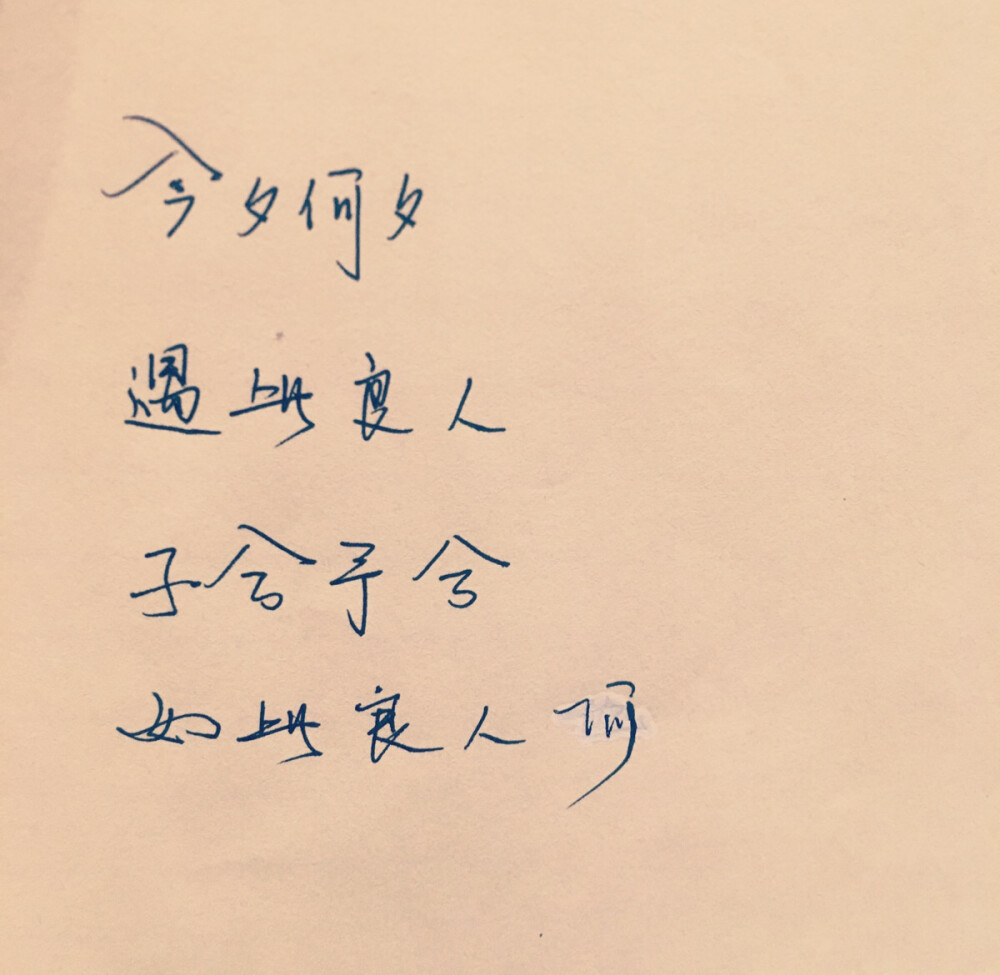 今夕何夕
遇此良人
子兮子兮
如此良人何